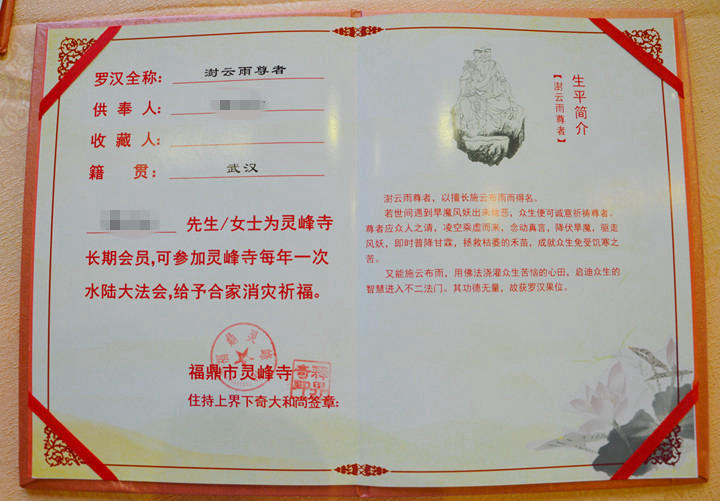 罗汉全称: 澍云雨尊者
供奉人:
收藏人:
籍贯: 武汉
先生/女士为灵峰寺
长期会员,可参加灵峰寺每年一次
水陆大法会,给予合家消灾祈福。
福鼎市灵峰寺
住持上界下奇大和尚签章:
生平简介
【澍云雨尊者】
澍云雨尊者,以擅长施云布雨而得名。
若世间遇到旱魔风妖出来为恶,众生便可诚意祈祷尊者。
尊者应众人之请,凌空乘虚而来,念动真言,降伏旱魔,驱走
风妖,即时普降甘霖,拯救枯萎的禾苗,成就众生免受饥寒之
苦。
又能施云布雨,用佛法浇灌众生苦恼的心田,启迪众生的
智慧进入不二法门。其功德无量,故获罗汉果位。